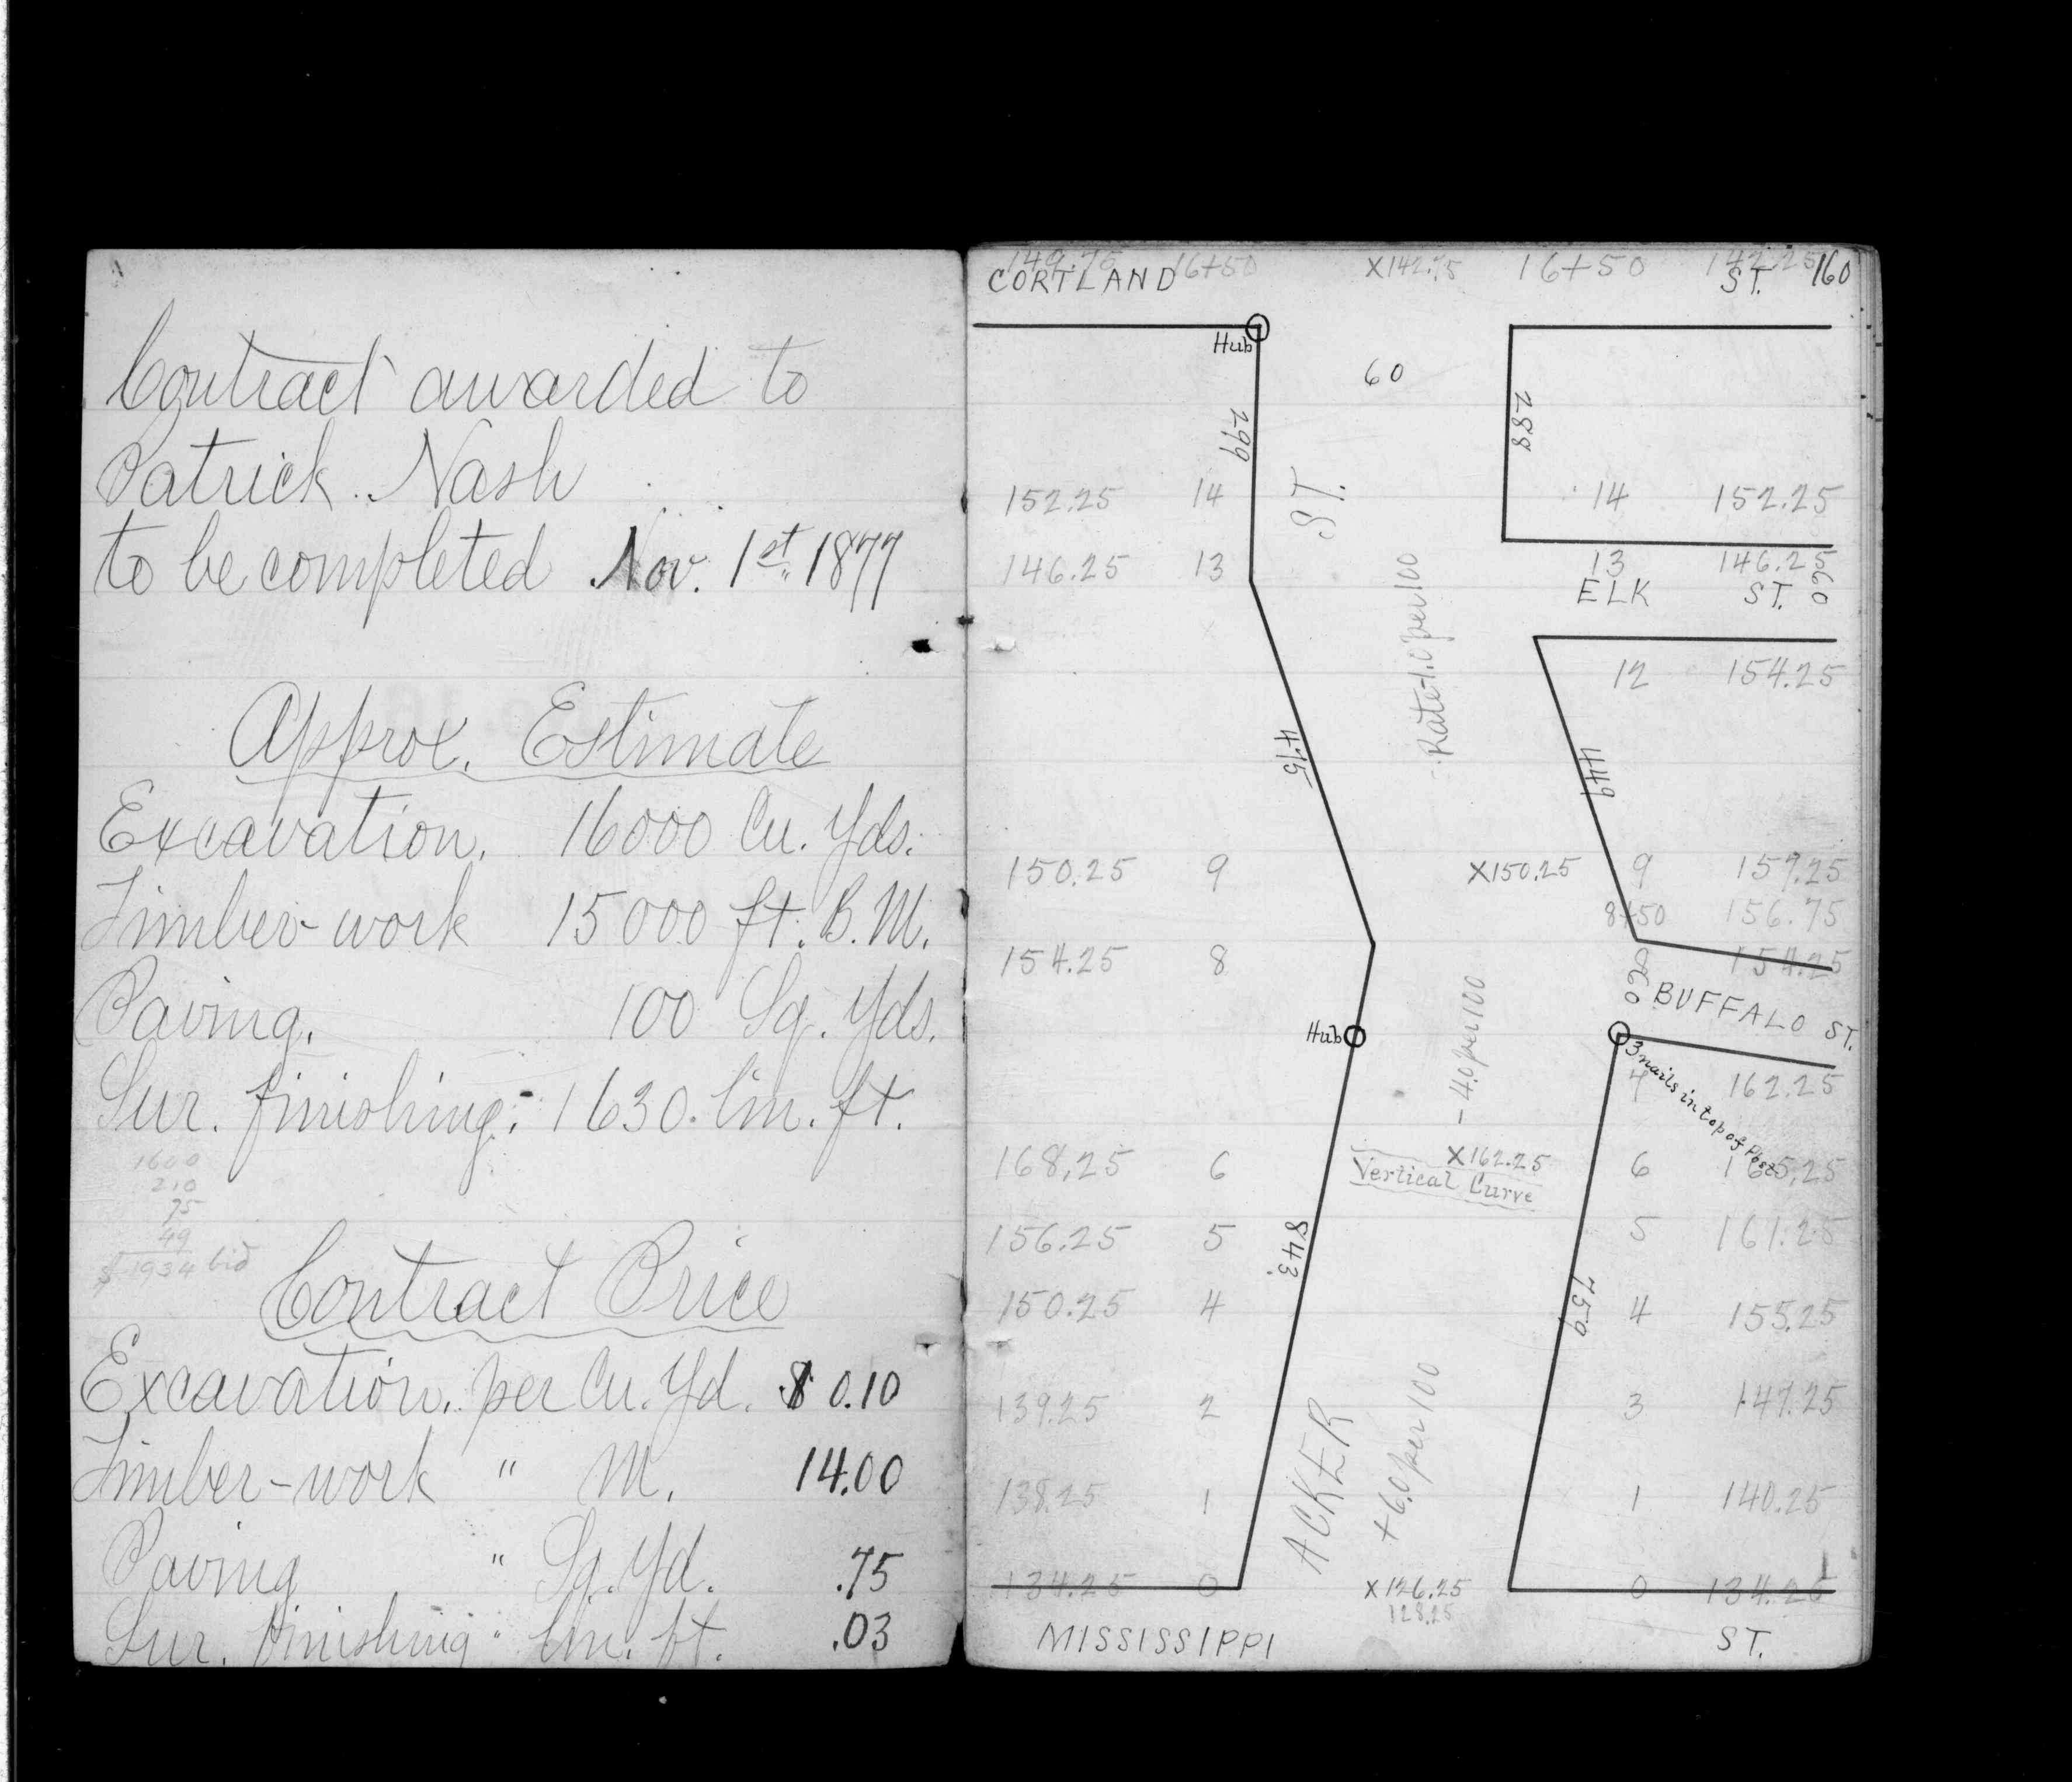 Contract awarded to
Patrick Nash
to be completed Nov. 1st 1877
Approx. Estimate
Excavation. 16000 Cu. Yds.
Timber-work 15000 ft. B.M.
Paving. 100 Sq. Yds.
Sur. finishing. 1630. lin. ft.
1600
210
75
49
$ 1934 bid
Contract Price
Excavation. per Cu. Yd. $ 0.10
Timber-work " M. 14.00
Paving " Sq. Yd. .75
Sur. finishing " lin. ft. .03
149.75 16+50 X142.75 16+50 142.25 160
CORTLAND ST.
Hub
60
299
288
ST.
152.25 14 14 152.25
146.25 13 13 146.25
ELK ST. 60
12 154.25
Rate-1.0 per 100
475
449
150.25 9 X150.25 9 157.25
8+50 156.75
154.25 8 8 154.25
60 BUFFALO ST.
- 4.0 per 100
Hub
3 nails in top of Post
7 162.25
168.25 6 X162.25 6 165.25
Vertical Curve
156.25 5 5 161.25
843.
759
150.25 4 4 155.25
139.25 2 3 147.25
ACKER
+6.0 per 100
138.25 1 1 140.25
134.25 0 X126.25 0 134.25
128.25
MISSISSIPPI ST.